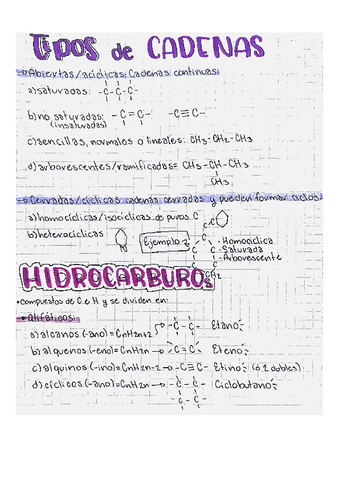 Tipos de CADENAS
Abiertas/acíclicas: Cadenas continuas
a) saturadas: -C-C-C-
b) no saturadas: -C=C- -C≡C-
(insaturadas)
c) sencillas, normales o lineales: CH3-CH2-CH3
d) arborescentes/ramificadas= CH3-CH-CH3
CH3
Cerradas/cíclicas: cadenas cerradas y pueden formar ciclos
a) homocíclicas/isocíclicas: de puros C
b) heterocíclicas N
Ejemplo
C C C C C C
· Homocíclica
· Saturada
· Arborescente
HIDROCARBUROS
· compuestos de C e H y se dividen en:
Alifáticos:
a) alcanos (-ano)=CnH2n+2 -C-C- Etano
b) alquenos (-eno)=CnH2n → C=C Eteno
c) alquinos (-ino)=CnH2n-2 → -C≡C- Etino (ó 2 dobles)
d) cíclicos (-ano)=CnH2n → -C-C- Ciclobutano
-C-C-